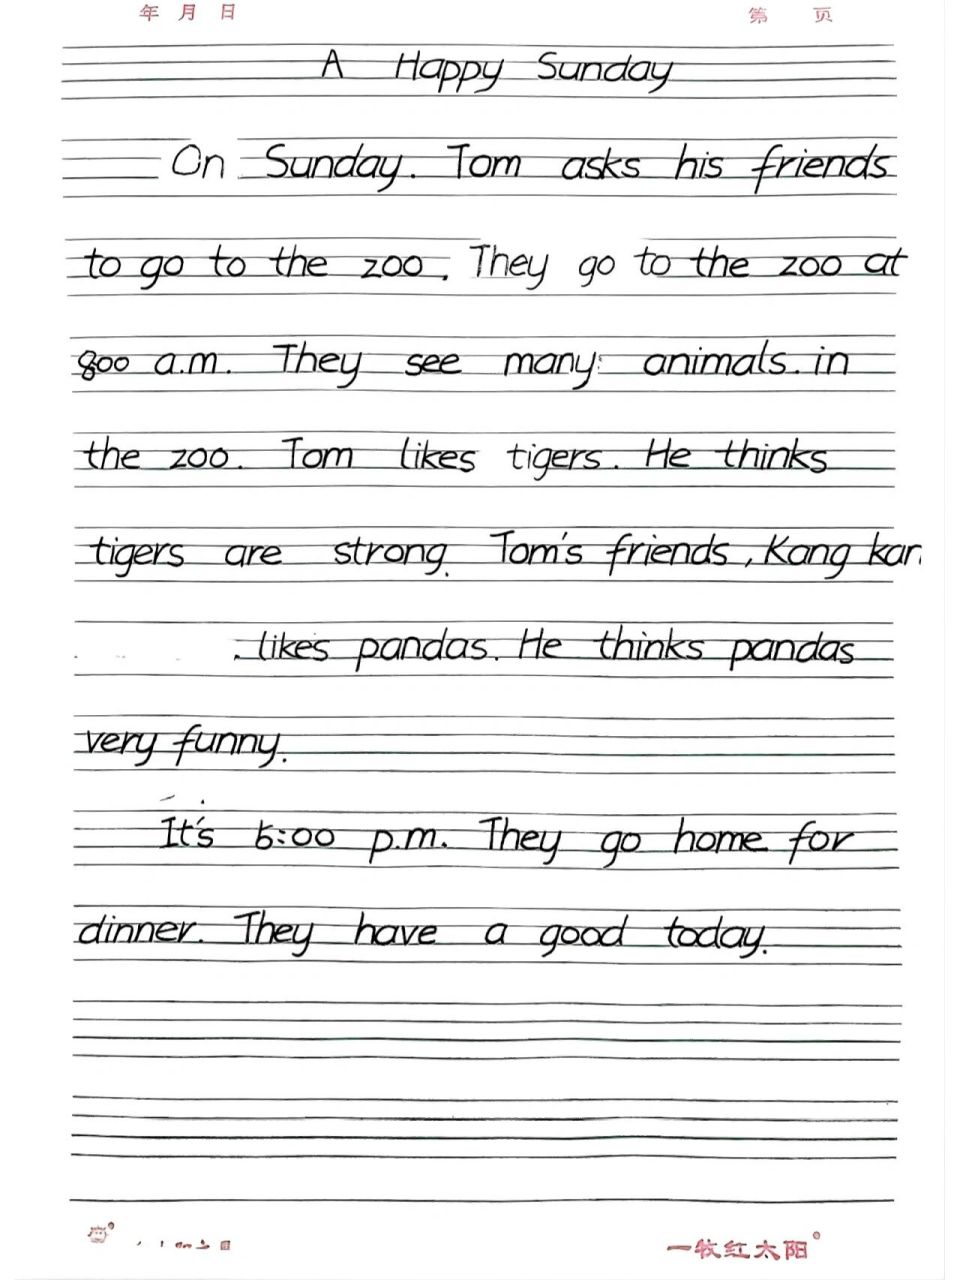 年 月 日 第 页
A Happy Sunday
On Sunday. Tom asks his friends
to go to the zoo. They go to the zoo at
800 a.m. They see many animals. in
the zoo. Tom likes tigers. He thinks
tigers are strong. Tom's friends, Kang kan
likes pandas. He thinks pandas
very funny.
It's 5:00 p.m. They go home for
dinner. They have a good today.
一牧红太阳